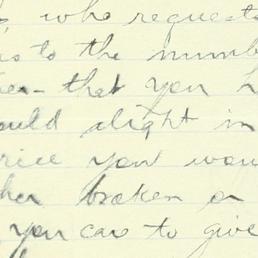 who requests
as to the numb
that you h
ould alight in
rice you wou
her broken or
you care to give